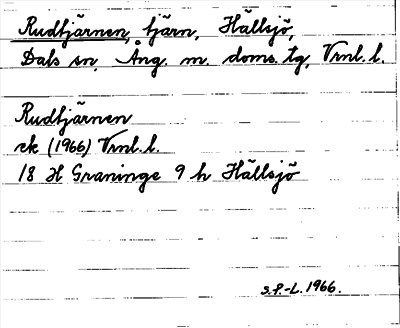 Rudtjärnen, tjärn, Hällsjö,
Dals sn, Ång. m. doms. tg, Vrnl. l.
Rudtjärnen
ek (1966) Vrnl. l.
18 H Graninge 9 h Hällsjö
S.P.-L. 1966.